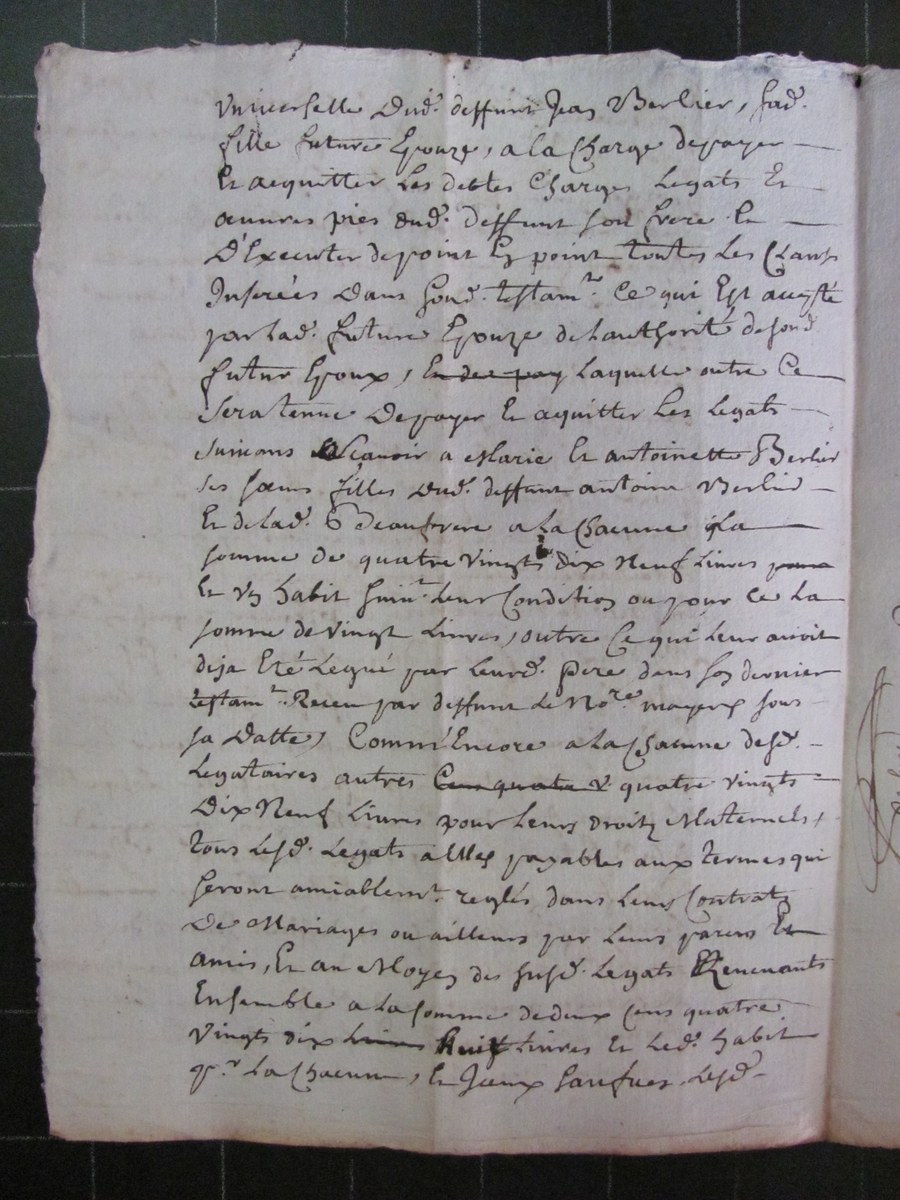 Vniverselle dud. deffunt Jean Berlier, lad.
fille future Epouze, a la Charge de payer
Et acquitter les debtes Charges Legats Et
œuvres pies dud. deffunt son frere Et
D'Executer de point En point toutes les Clauses
Inserées dans sond. testamt. Ce qui Est accepté
par lad. future Epouze de Lauthorité de sond.
futur Epoux, Laquelle outre Ce
sera tenue De payer Et aquitter Les Legats
suivans Scavoir a Marie Et antoinette Berlier
ses sœurs filles dud. deffunt antoine Berlier
Et de lad. Beaufrere a la Chacune La
somme de quatre vingts dix Neuf Livres
Et Vn habit suivt. Leur Condition ou pour Ce La
somme de vingt Livres, outre Ce qui Leur avoit
deja Eté Legué par Leurd. pere dans son dernier
testamt. Receu par deffunt Me Nore. mayeux sous
sa Datte, Comm'Encore a la Chacune desd.
Legataires autres quatre vingts
Dix Neuf Livres pour Leurs droits Maternels,
tous lesd. Legats a Elles payables aux termes qui
seront amiablemt. reglés dans Leurs Contrats
De Mariages ou ailleurs par Leurs parens Et
amis, Et au Moyen des susd. Legats Revenants
Ensemble a La somme de deux Cens quatre
Vingts dix huit Livres Et Led. habit
pr. La Chacune, Et Jceux lesd.